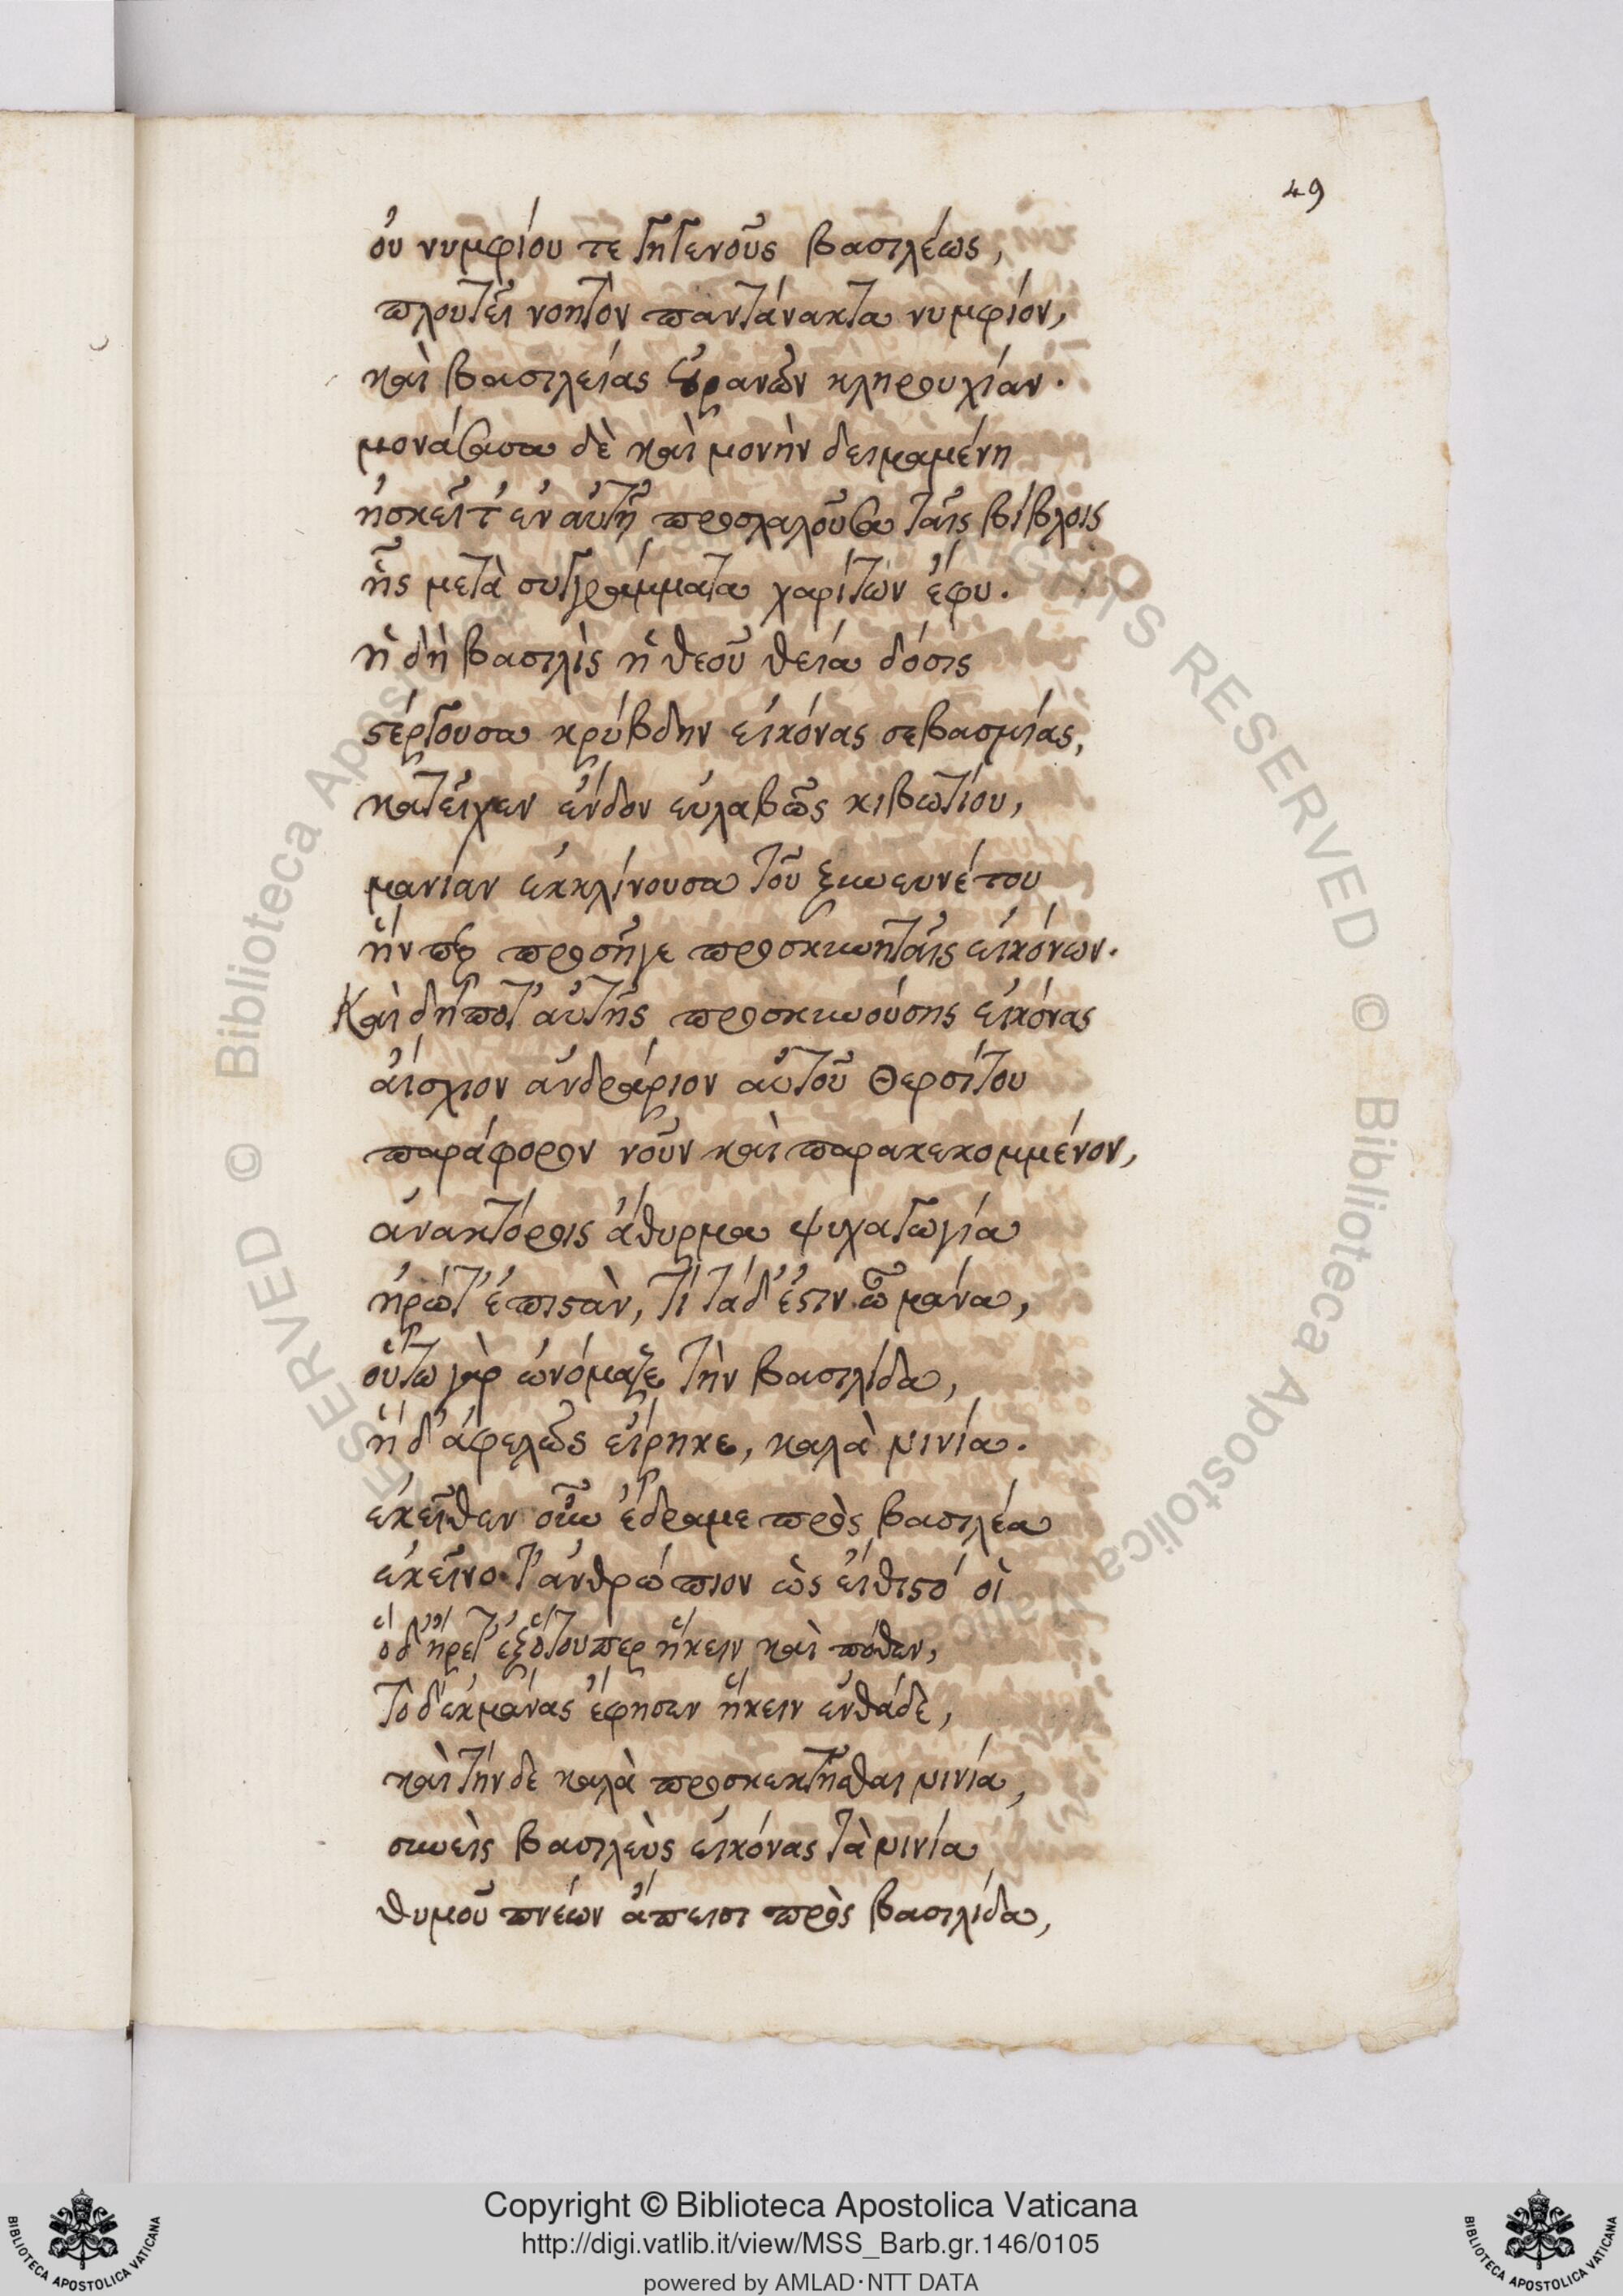 49
οὐ νυμφίου τε γηγενοῦς βασιλέως,
πλουτεῖ νοητὸν παντάνακτα νυμφίον,
καὶ βασιλείας οὐρανῶν κληρουχίαν.
μονάσασα δὲ καὶ μονὴν δειμαμένη
ἠσκεῖτ' ἐν αὐτῇ προσλαλοῦσα ταῖς βίβλοις
ἧς μετὰ συγγράμματα χαρίτων ἔφυ.
ἡ δὴ βασιλὶς ἡ θεοῦ θεία δόσις
στέργουσα κρύβδην εἰκόνας σεβασμίας,
κατεῖχεν ἔνδον εὐλαβῶς κιβωτίου,
μανίαν ἐκκλίνουσα τοῦ ξυνευνέτου
ἥν περ προσῆγε προσκυνηταῖς εἰκόνων.
Καὶ δή ποτ' αὐτῆς προσκυνούσης εἰκόνας
αἴσχιον ἀνδράριον αὐτοῦ Θερσίτου
παράφορον νοῦν καὶ παρακεκομμένον,
ἀνακτόροις ἄθυρμα ψυχαγωγία
ἠρώτ' ἐπιστὰν, τί τάδ' ἔστιν ὦ μάνα,
οὕτω γὰρ ὠνόμαζε τὴν βασιλίδα,
ἡ δ' ἀφελῶς εἴρηκε, καλὰ νινία.
ἐκεῖθεν οὖν ἔδραμε πρὸς βασιλέα
ἐκεῖνο τ' ἀνθρώπιον ὡς εἴθιστό οἱ
ὁ δ' ἤρετ' ἐξ ὅτουπερ ἥκειν καὶ πόθεν,
τὸ δ' ἐκ μάνας ἔφησεν ἥκειν ἐνθάδε,
καὶ τήνδε καλὰ προσκεκτῆσθαι νινία,
συνεὶς βασιλεὺς εἰκόνας τὰ νινία
θυμοῦ πνέων ἄπεισι πρὸς βασιλίδα,
Copyright © Biblioteca Apostolica Vaticana
http://digi.vatlib.it/view/MSS_Barb.gr.146/0105
powered by AMLAD·NTT DATA